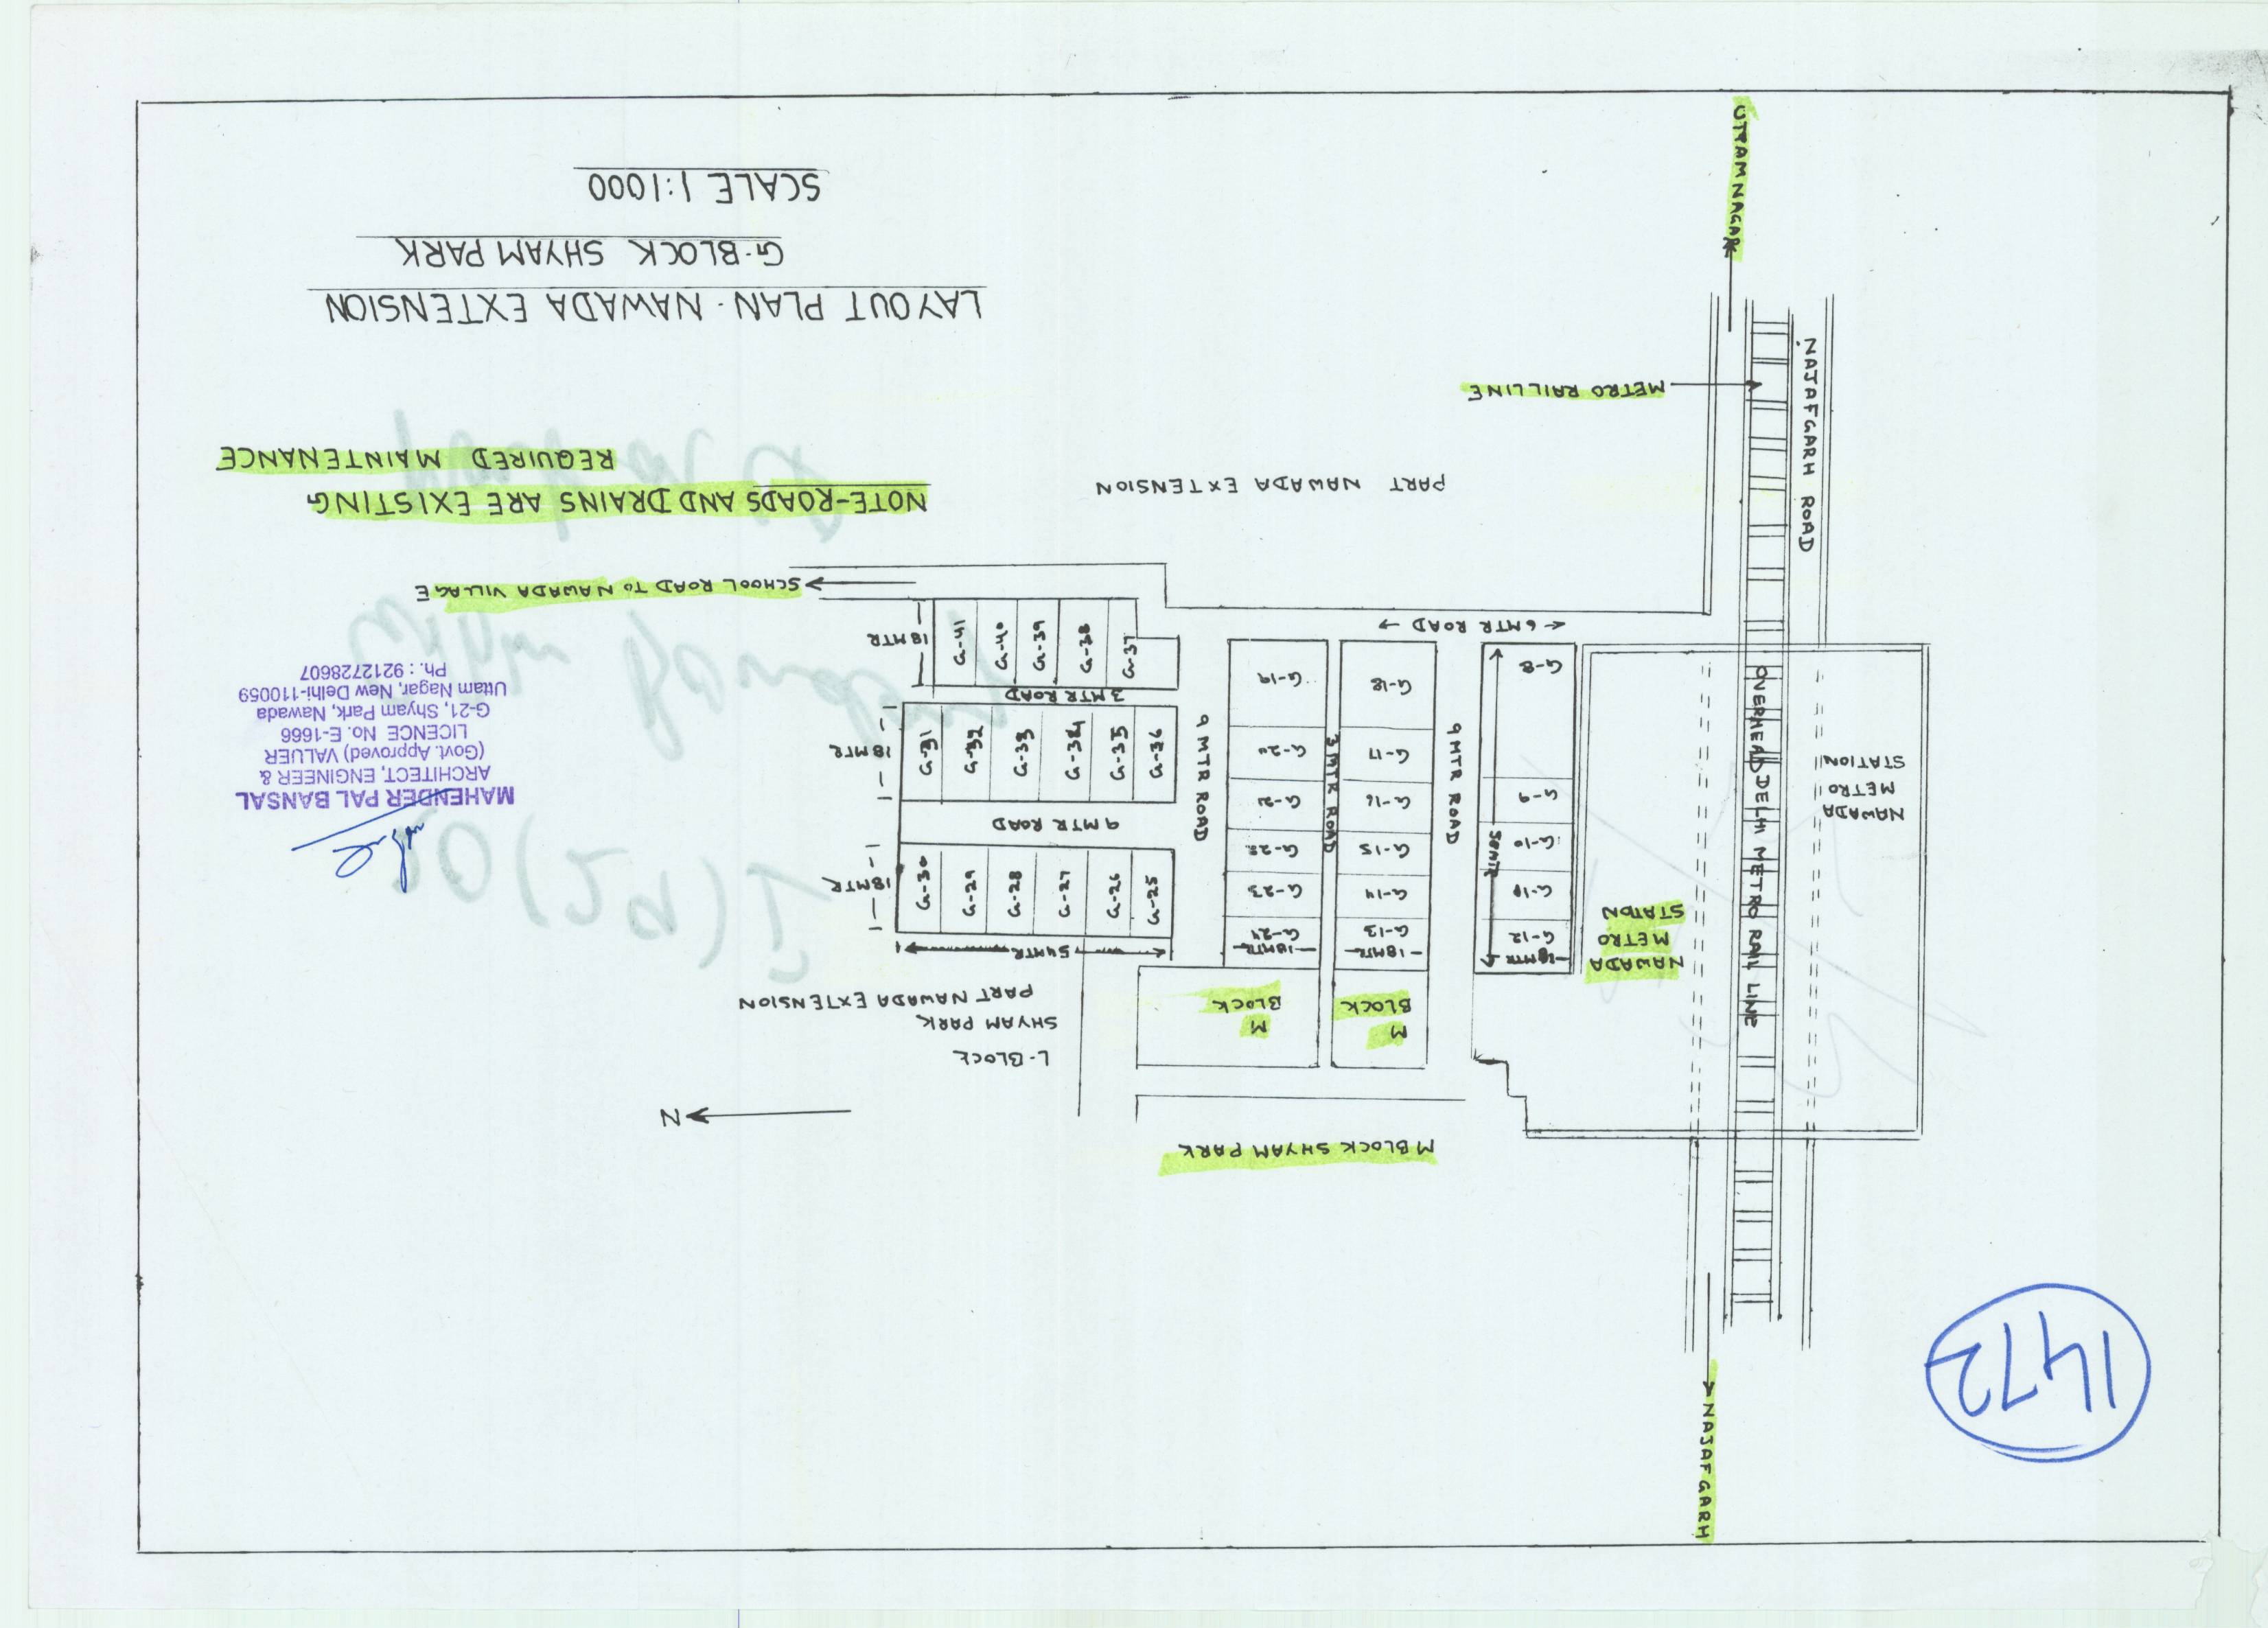 1473
NAJAFGARH
M BLOCK SHYAM PARK
N
L-BLOCK
SHYAM PARK
PART NAWADA EXTENSION
NAWADA
METRO
STATION
NAWADA
METRO
STATON
OVERHEAD DELHI METRO RAIL LINE
M
BLOCK
M
BLOCK
18MTR
G-12
G-10
G-9
G-8
50MTR
9 MTR ROAD
18MTR
G-13
G-14
G-15
G-16
G-17
G-18
3 MTR ROAD
18MTR
G-24
G-23
G-22
G-21
G-20
G-19
9 MTR ROAD
54MTR
G-25
G-26
G-27
G-28
G-29
G-30
18MTR
9 MTR ROAD
G-36
G-35
G-34
G-33
G-32
G-31
18MTR
3 MTR ROAD
G-37
G-38
G-39
G-40
G-41
18MTR
6 MTR ROAD
SCHOOL ROAD TO NAWADA VILLAGE
PART NAWADA EXTENSION
METRO RAIL LINE
NAJAFGARH ROAD
UTTAM NAGAR
MAHENDER PAL BANSAL
ARCHITECT, ENGINEER &
(Govt. Approved) VALUER
LICENCE No. E-1666
G-21, Shyam Park, Nawada
Uttam Nagar, New Delhi-110059
Ph. : 9212728607
NOTE-ROADS AND DRAINS ARE EXISTING
REQUIRED MAINTENANCE
LAYOUT PLAN-NAWADA EXTENSION
G-BLOCK SHYAM PARK
SCALE 1:1000